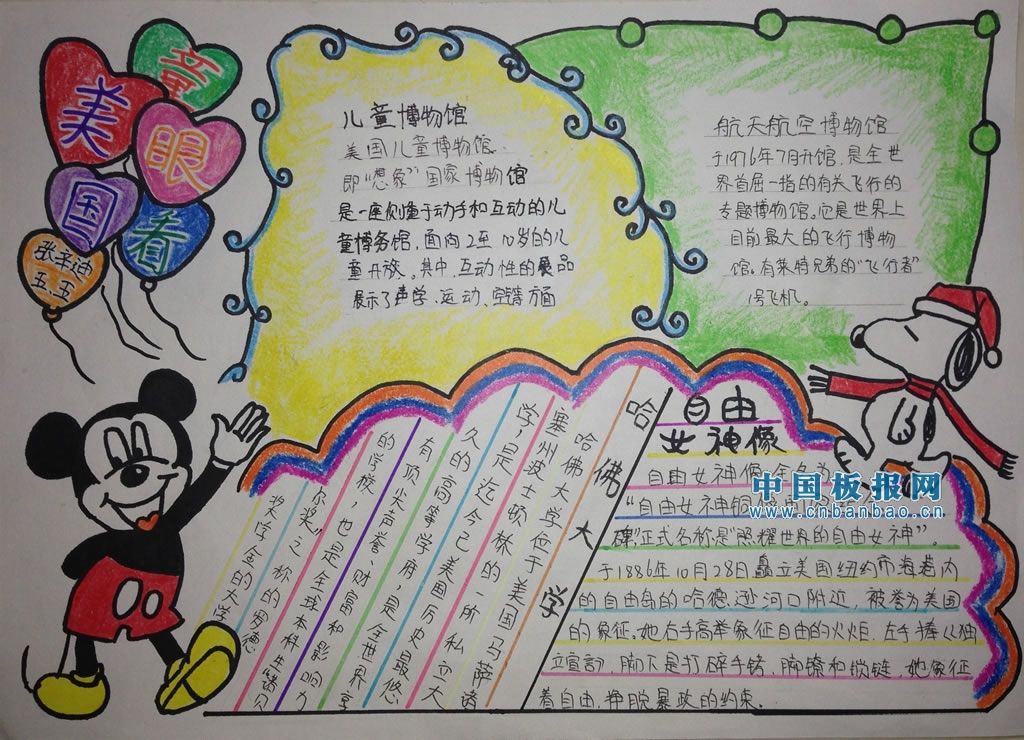 童
美
眼
国
看
张辛迪
五.五
儿童博物馆
美国儿童博物馆、
即“想象”国家博物馆
是一座侧重于动手和互动的儿
童博务馆，面向2至10岁的儿
童开放。其中，互动性的展品
展示了声学、运动、空等方面
航天航空博物馆
于1976年7月开馆，是全世
界首屈一指的有关飞行的
专题博物馆。它是世界上
目前最大的飞行博物
馆。有莱特兄弟的“飞行者”
1号飞机。
哈佛大学
哈佛大学位于美国马萨诸
塞州波士顿林的一所私立大
学，是迄今已美国历史最悠
久的高等学府，是全世界享
有顶尖声誉、财富和影响力
的学校，也是全球本科生诺贝
尔奖”之称的罗德
奖学金的大学
自由
女神像
自由女神像
“自由女神铜
碑”正式名称是“照耀世界的自由女神”。
于1886年10月28日矗立美国纽约市海港内
的自由岛的哈德逊河口附近，被誉为美国
的象征。她右手高举象征自由的火炬，左手捧《独
立宣言，脚下是打碎手铐、脚镣和锁链，她象征
着自由，挣脱暴政的约束。
中国板报网
www.cnbanbao.cn